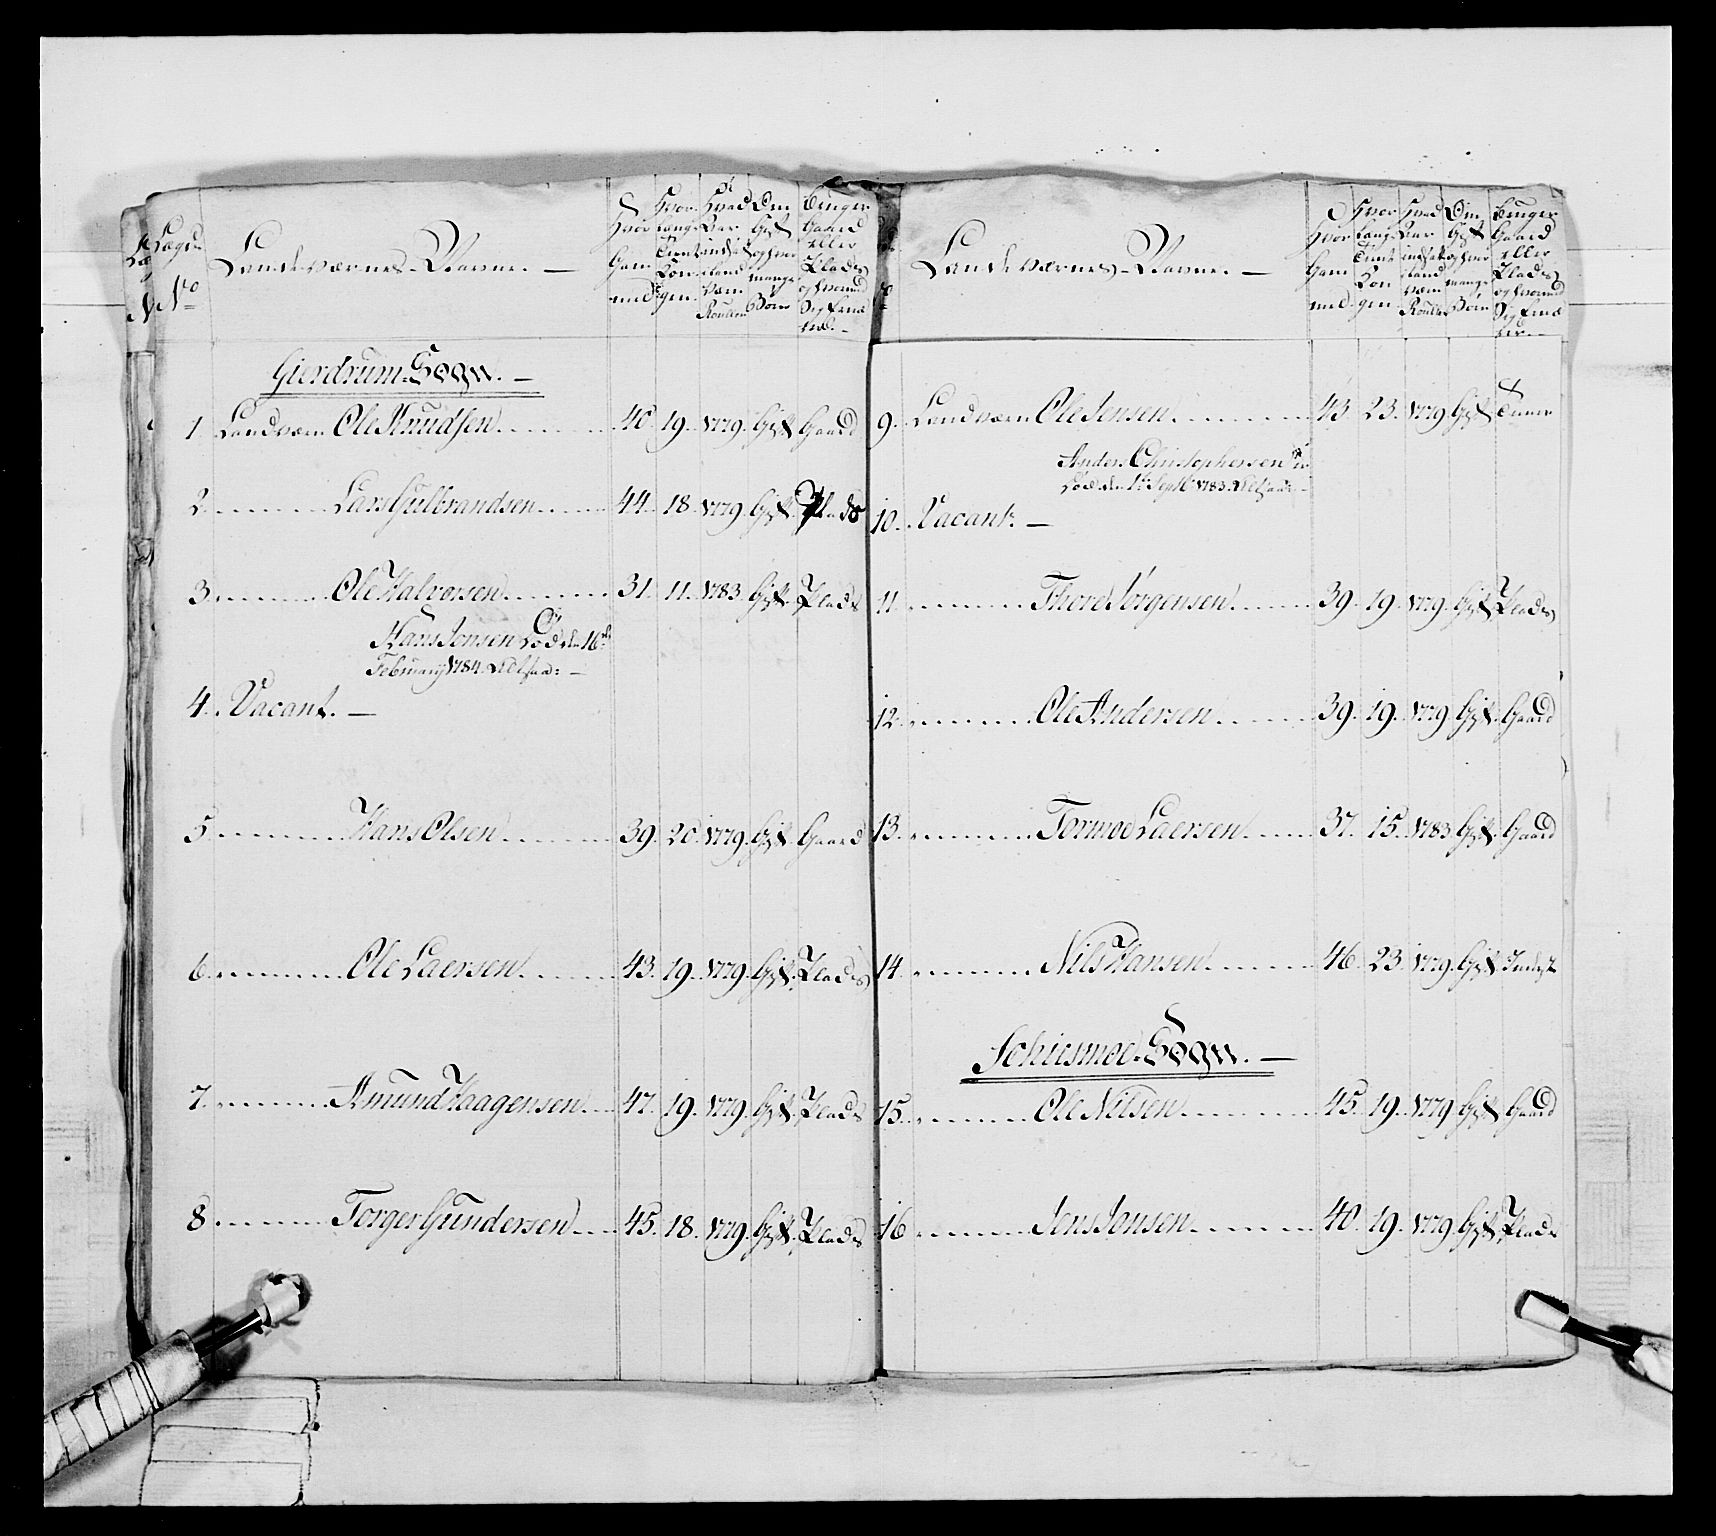 Lægds No
Landeværnes Navne. —
Hvor Gammel
Hvor Længe Tient Kongen
Hvad Aar indsat Landværn Roullen
Om Gift og hvor mange Børn
Bruger Gaard eller Plads og hvormed Sig Ernærer. —
Gierdrum Sogn. —
1. Landværn Ole Knudsen 40. 19. 1779. Gift Gaard
2. Lars Gulbrandsen 44. 18. 1779. Gift. Plads
3. Ole Halvorsen 31. 11. 1783. Gift. Plads
Hans Jonsen Død den 16de
February 1784
4. Vacant. —
5. Hans Olsen 39. 20. 1779. Gift. Gaard
6. Ole Laersen 43. 19. 1779. Gift. Plads
7. Amund Haagensen 47. 19. 1779. Gift. Plads
8. Torger Gundersen 45. 18. 1779. Gift. Plads
Landeværnes Navne. —
Hvor Gammel
Hvor Længe Tient Kongen
Hvad Aar indsat Landværn Roullen
Om Gift og hvor mange Børn
Bruger Gaard eller Plads og hvormed Sig Ernærer. —
9. Landværn Ole Jensen 43. 23. 1779 Gift
Anders Christophersen er
Død den 1te Septb 1783
10. Vacant. —
11. Thore Jørgensen 39. 19. 1779. Gift Plads
12. Ole Andersen 39. 19. 1779 Gift. Gaard
13. Tormod Laersen 37. 15. 1783 Gift. Gaard
14. Nils Hansen 46. 23. 1779. Gift
Schiesmoe Sogn. —
15. Ole Nilsen 45. 19. 1779 Gift Gaard
16. Jens Jonsen 40. 19. 1779 Gift Plads